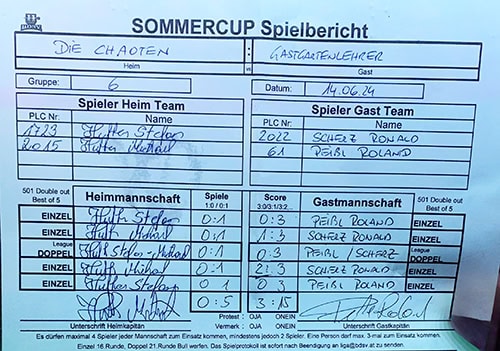 SOMMERCUP Spielbericht
DIE CHAOTEN GASTGARTENLEHRER
Heim vs Gast
Gruppe: 6 Datum: 14.06.24
Spieler Heim Team Spieler Gast Team
PLC Nr: Name PLC Nr: Name
1723 Hutter Stefan 2022 SCHERZ RONALD
2015 Hutter Michael 61 PEIßL ROLAND
501 Double out Best of 5 Heimmannschaft Spiele 1:0/0:1 Score 3:0/3:1/3:2 Gastmannschaft 501 Double out Best of 5
EINZEL Huth Stefan 0:1 0:3 PEIßL ROLAND EINZEL
EINZEL Huth Michael 0:1 1:3 SCHERZ RONALD EINZEL
League DOPPEL Huth Stefan - Michael 0:1 0:3 PEIßL / SCHERZ League DOPPEL
EINZEL Huth Michael 0:1 2:3 SCHERZ RONALD EINZEL
EINZEL Hutter Stefan 0:1 0:3 PEIßL ROLAND EINZEL
0:5 3:15
Protest : OJA ONEIN
Unterschrift Heimkapitän Vermerk : OJA ONEIN Unterschrift Gastkapitän
Es dürfen maximal 4 Spieler jeder Mannschaft zum Einsatz kommen, mindestens jedoch 2 Spieler. Eine Person darf max. 3-mal zum Einsatz kommen.
Einzel 16.Runde, Doppel 21.Runde Bull werfen. Das Spielprotokoll ist sofort nach Beendigung an liga@bdsv.at zu senden.